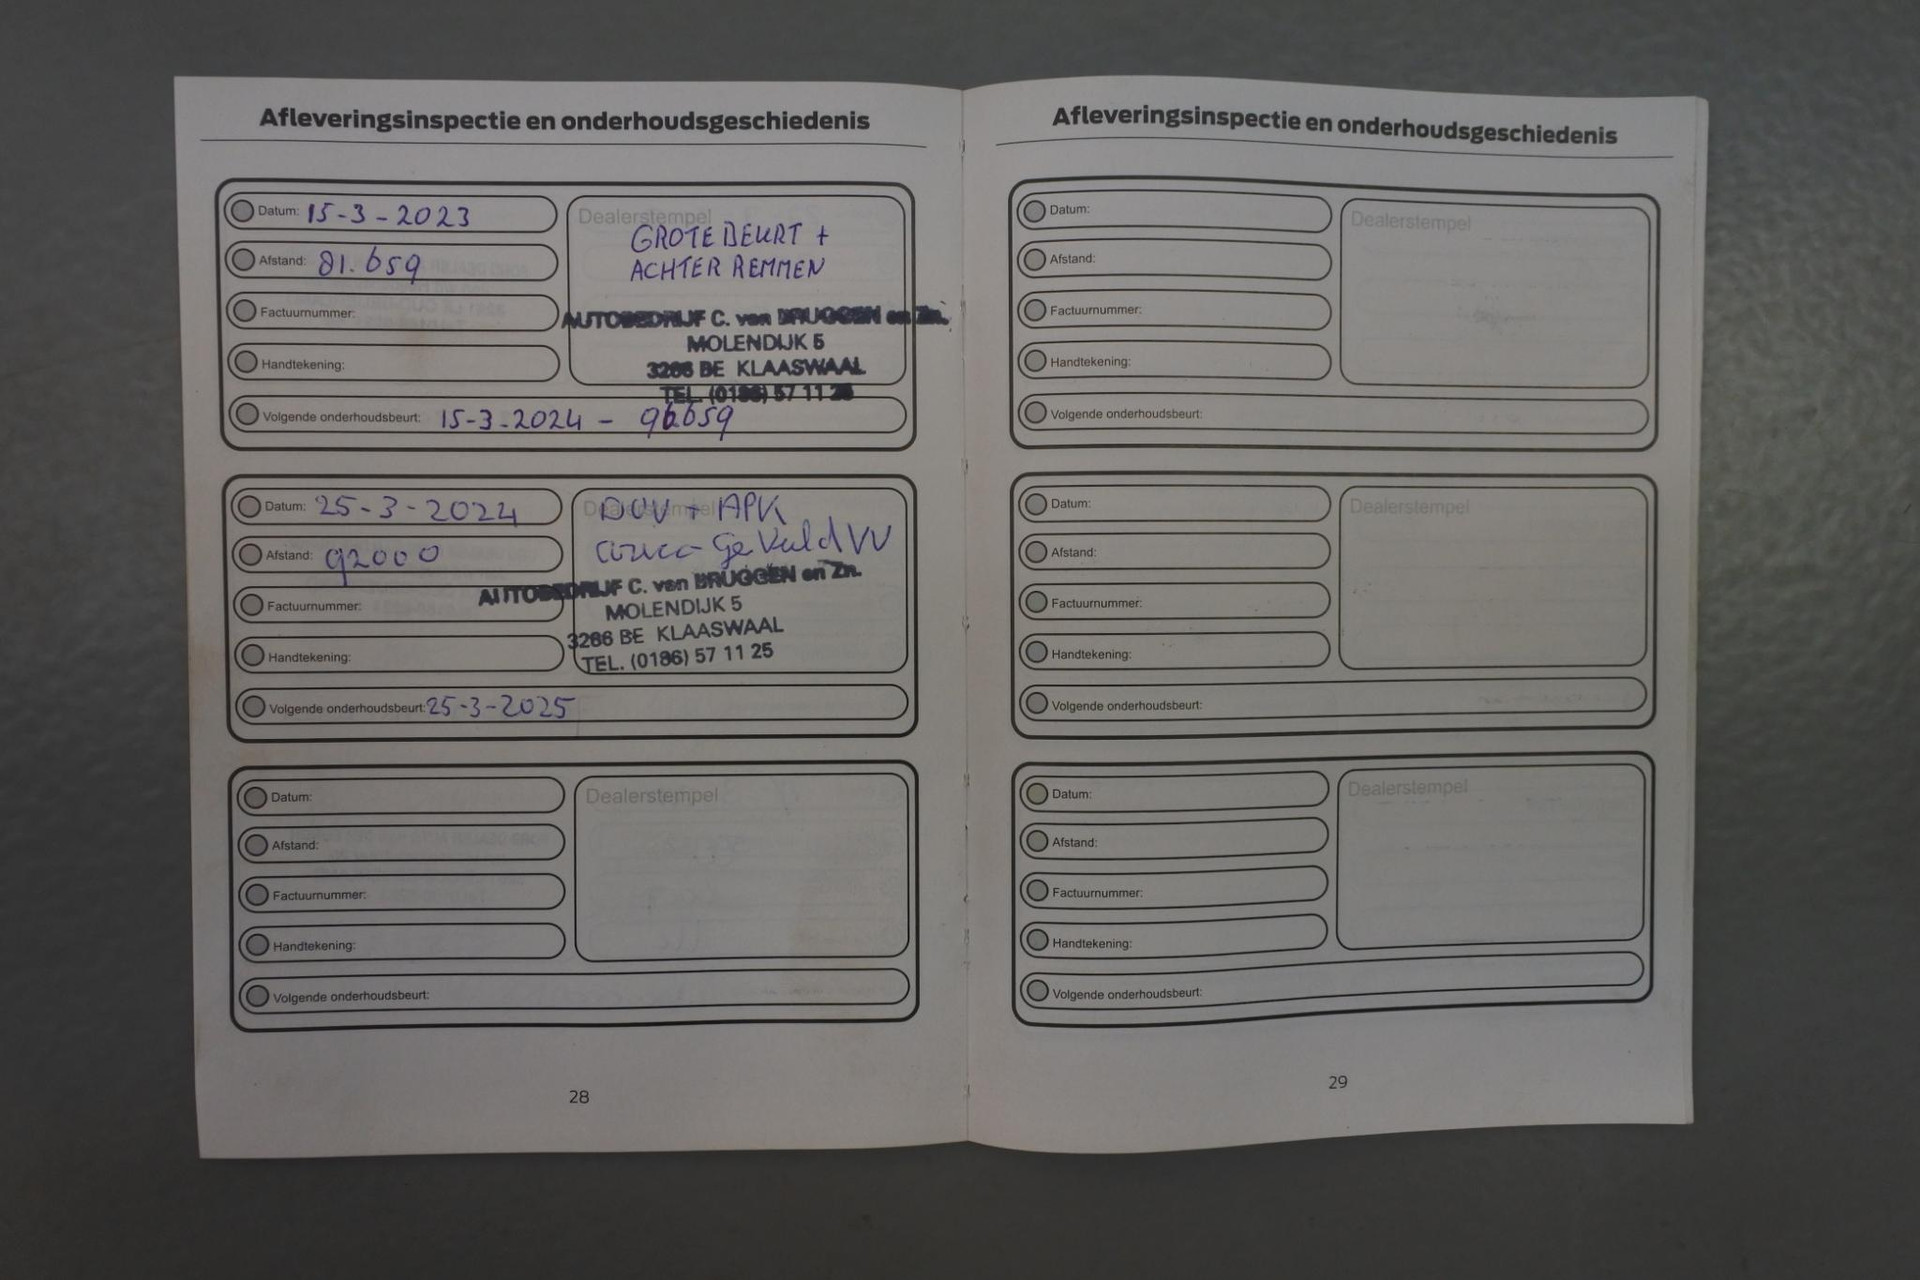 Afleveringsinspectie en onderhoudsgeschiedenis
Datum: 15-3-2023
Dealerstempel
GROTE BEURT +
ACHTER REMMEN
Afstand: 81.659
Factuurnummer:
AUTOBEDRIJF C. van BRUGGEN en Zn.
MOLENDIJK 5
3286 BE KLAASWAAL
TEL. (0186) 57 11 25
Handtekening:
Volgende onderhoudsbeurt: 15-3-2024 - 96659
Datum: 25-3-2024
Dealerstempel
+ APK
GeVuld VV
Afstand: 92000
Factuurnummer:
AUTOBEDRIJF C. van BRUGGEN en Zn.
MOLENDIJK 5
3286 BE KLAASWAAL
TEL. (0186) 57 11 25
Handtekening:
Volgende onderhoudsbeurt: 25-3-2025
Datum:
Dealerstempel
Afstand:
Factuurnummer:
Handtekening:
Volgende onderhoudsbeurt:
28
Afleveringsinspectie en onderhoudsgeschiedenis
Datum:
Dealerstempel
Afstand:
Factuurnummer:
Handtekening:
Volgende onderhoudsbeurt:
Datum:
Dealerstempel
Afstand:
Factuurnummer:
Handtekening:
Volgende onderhoudsbeurt:
Datum:
Dealerstempel
Afstand:
Factuurnummer:
Handtekening:
Volgende onderhoudsbeurt:
29